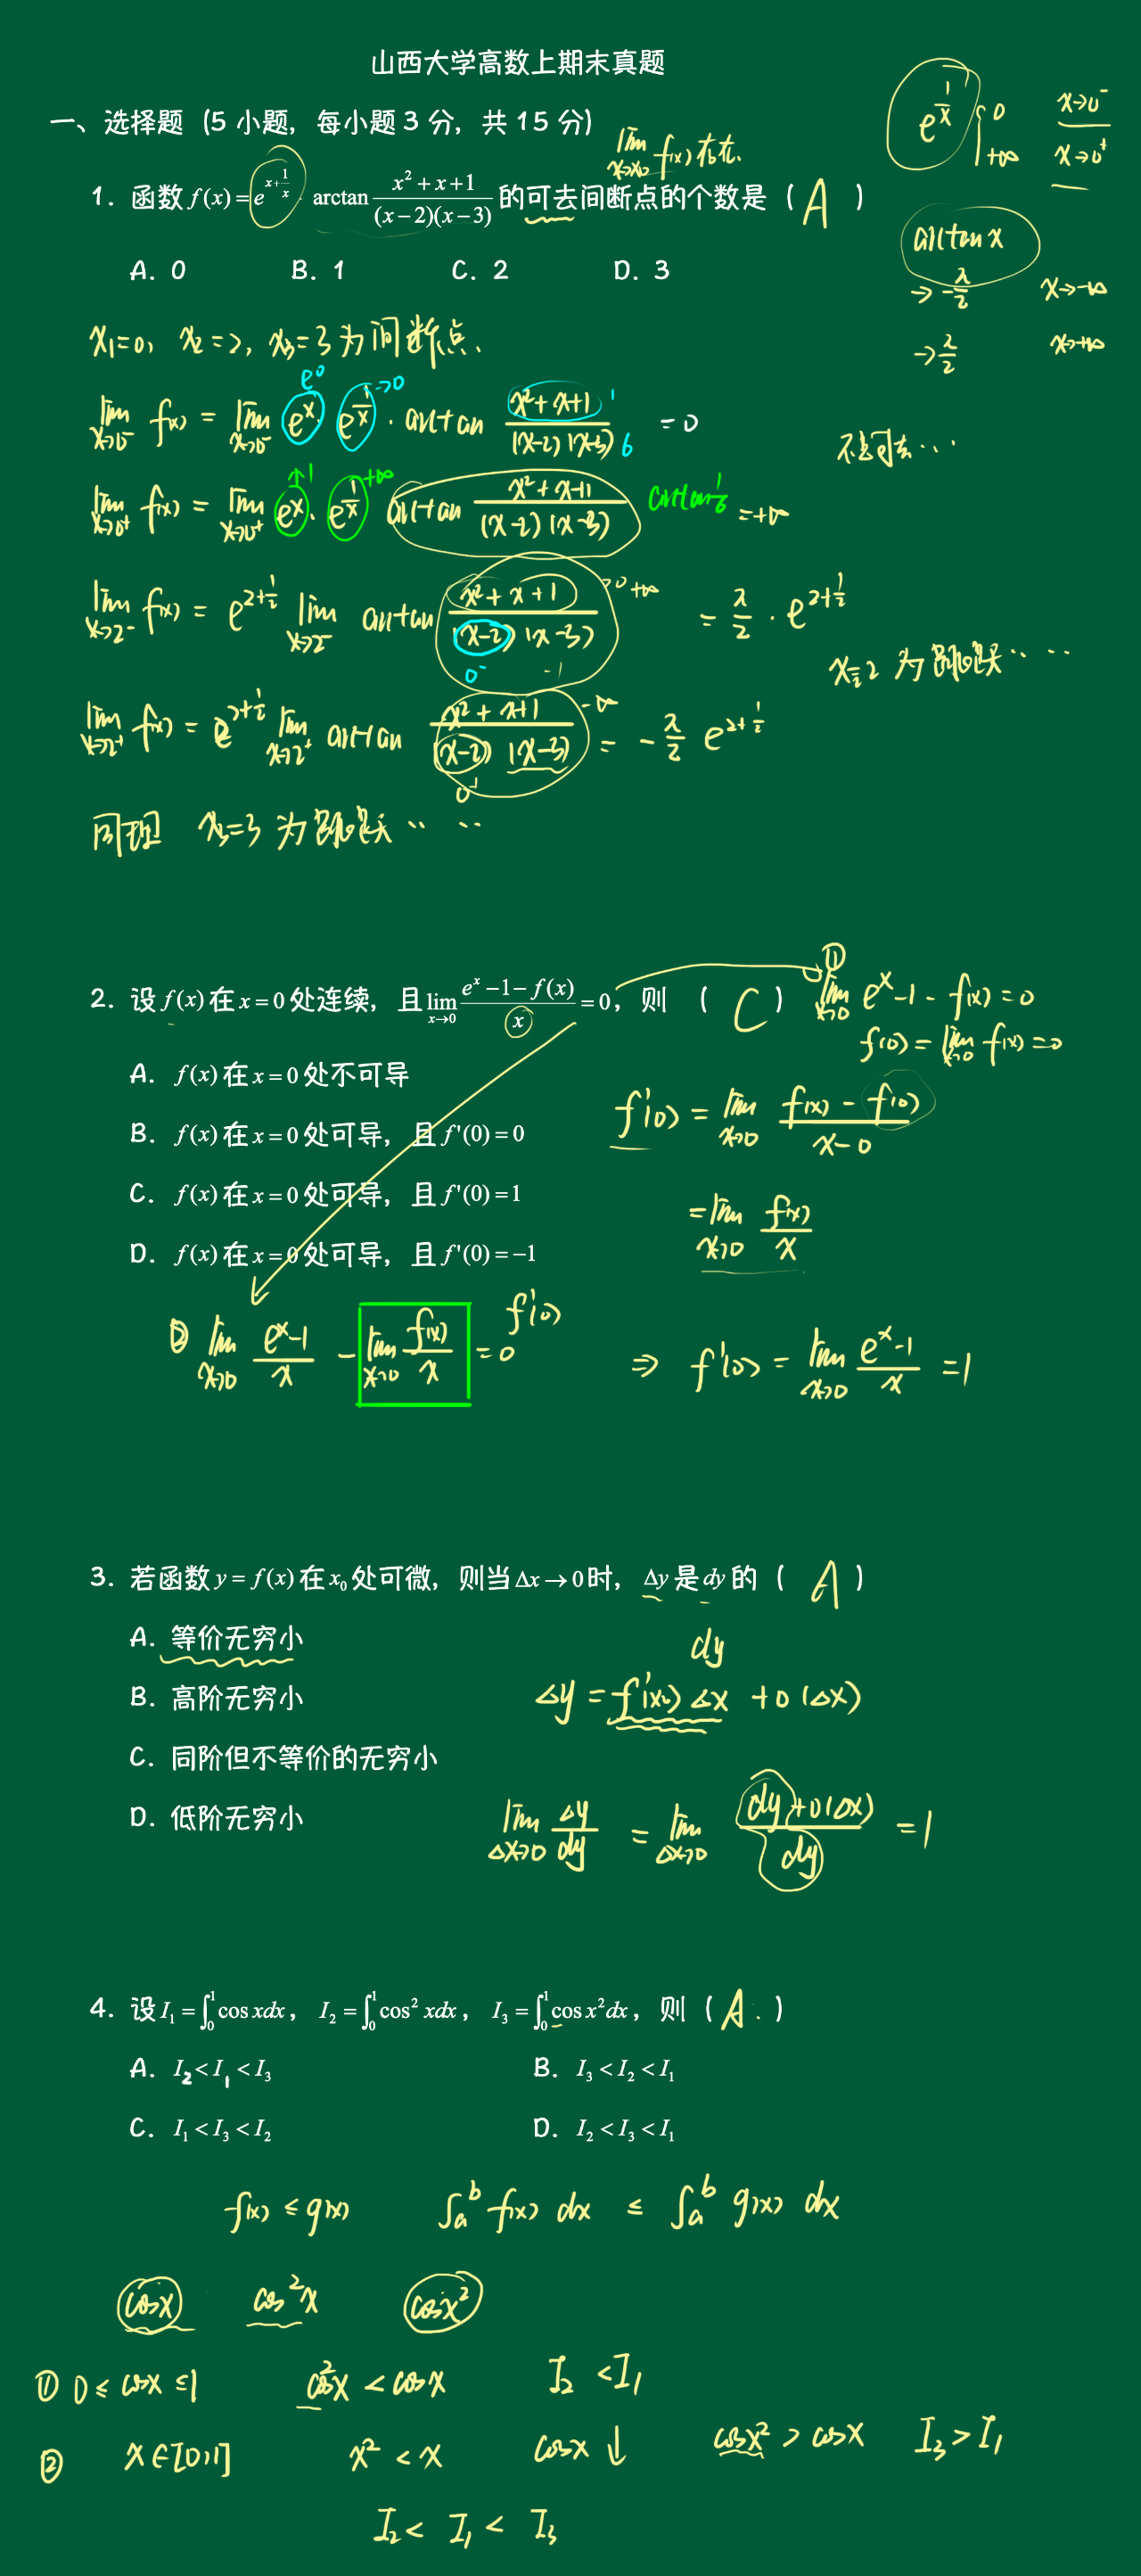 山西大学高数上期末真题
一、选择题 (5 小题，每小题 3 分，共 15 分)
lim x→x₀ f(x) 存在.
e^(1/x) { 0 x→0⁻
+∞ x→0⁺
1. 函数 f(x)=e^(x+1/x) arctan (x²+x+1)/((x−2)(x−3)) 的可去间断点的个数是 ( A )
A. 0 B. 1 C. 2 D. 3
arctan x
→ −π/2 x→−∞
→ π/2 x→+∞
x₁=0, x₂=2, x₃=3 为间断点.
lim x→0⁻ f(x) = lim x→0⁻ e^x · e^(1/x) · arctan (x²+x+1)/((x−2)(x−3)) = 0
e⁰ →0 1 6
不是可去…
lim x→0⁺ f(x) = lim x→0⁺ e^x · e^(1/x) arctan (x²+x+1)/((x−2)(x−3)) = +∞
↑1 +∞ arctan 1/6
lim x→2⁻ f(x) = e^(2+1/2) lim x→2⁻ arctan (x²+x+1)/((x−2)(x−3)) = π/2 · e^(2+1/2)
0⁻ −1 +∞
x=2 为跳跃…
lim x→2⁺ f(x) = e^(2+1/2) lim x→2⁺ arctan (x²+x+1)/((x−2)(x−3)) = −π/2 e^(2+1/2)
0⁺ −∞
同理 x₃=3 为跳跃…
2. 设 f(x) 在 x=0 处连续，且 lim x→0 (e^x−1−f(x))/x = 0，则 ( C )
① lim x→0 e^x−1−f(x)=0
f(0) = lim x→0 f(x)=0
A. f(x) 在 x=0 处不可导
B. f(x) 在 x=0 处可导，且 f'(0)=0
C. f(x) 在 x=0 处可导，且 f'(0)=1
D. f(x) 在 x=0 处可导，且 f'(0)=−1
f'(0) = lim x→0 (f(x)−f(0))/(x−0)
= lim x→0 f(x)/x
② lim x→0 (e^x−1)/x − lim x→0 f(x)/x = 0 f'(0)
⇒ f'(0) = lim x→0 (e^x−1)/x = 1
3. 若函数 y=f(x) 在 x₀ 处可微，则当 Δx→0 时，Δy 是 dy 的 ( A )
A. 等价无穷小
B. 高阶无穷小
C. 同阶但不等价的无穷小
D. 低阶无穷小
dy
Δy = f'(x₀) Δx + o(Δx)
lim Δx→0 Δy/dy = lim Δx→0 (dy+o(Δx))/dy = 1
4. 设 I₁=∫₀¹cos xdx，I₂=∫₀¹cos² xdx，I₃=∫₀¹cos x²dx，则 ( A. )
A. I₂<I₁<I₃ B. I₃<I₂<I₁
C. I₁<I₃<I₂ D. I₂<I₃<I₁
f(x) ≤ g(x) ∫ₐᵇ f(x) dx ≤ ∫ₐᵇ g(x) dx
cosx cos²x cosx²
① 0≤cosx≤1 cos²x<cosx I₂<I₁
② x∈[0,1] x²<x cosx↓ cosx²>cosx I₃>I₁
I₂< I₁< I₃